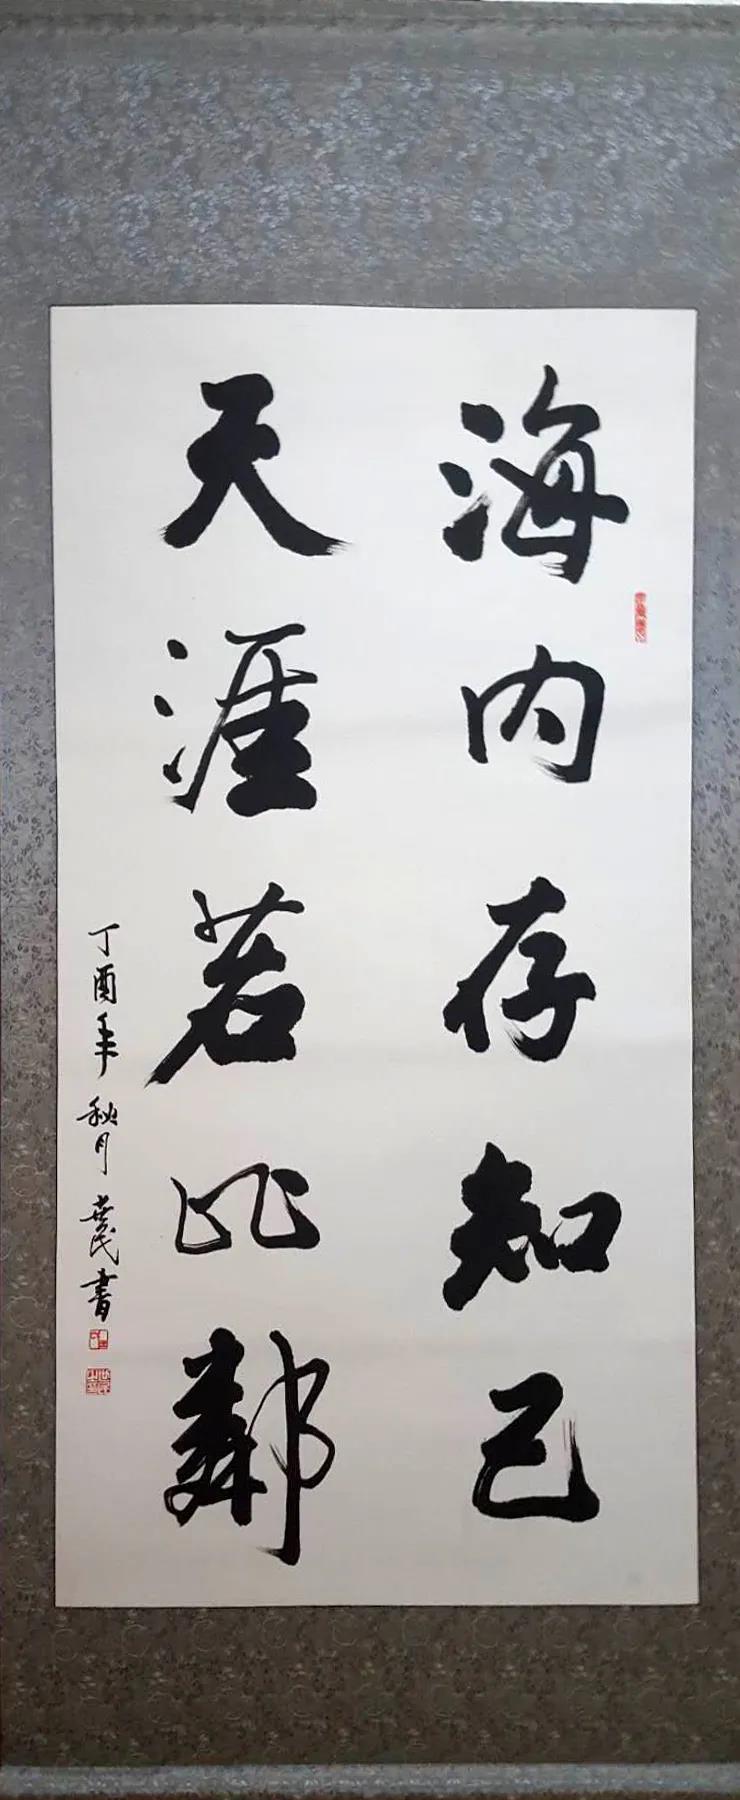 海内存知己
天涯若比鄰
丁酉年秋月世民書